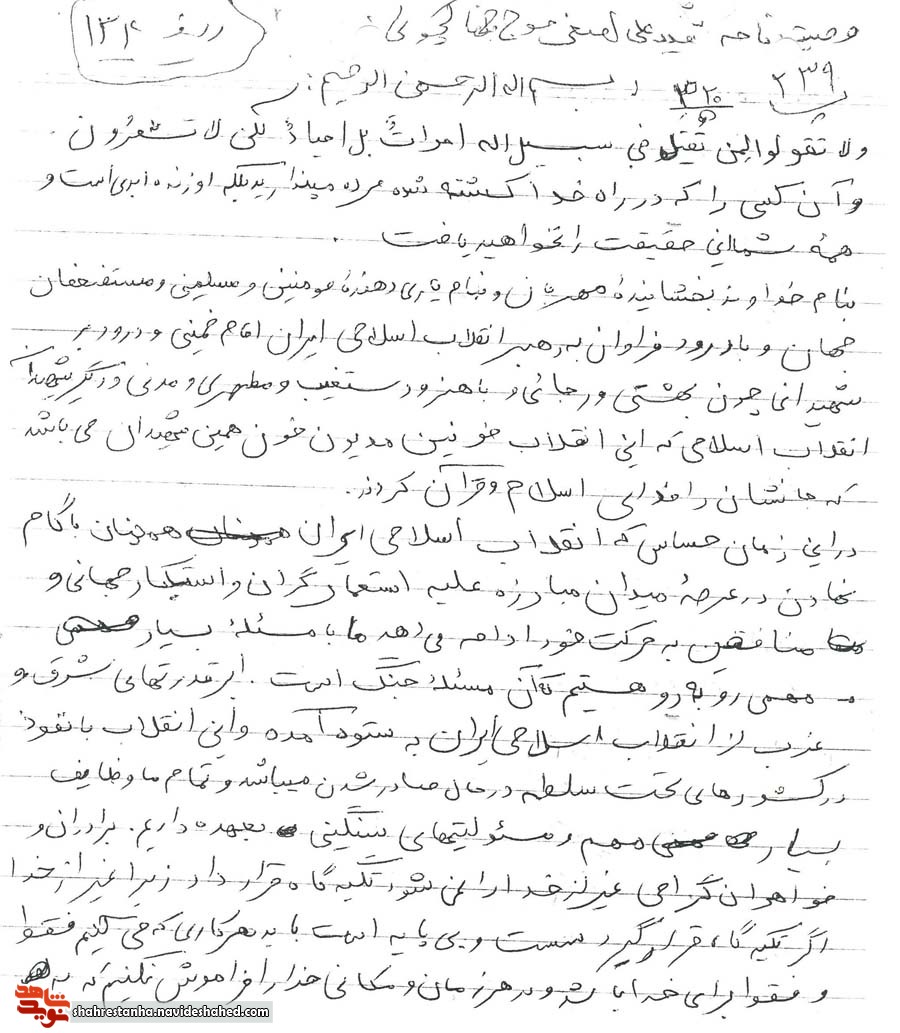 وصیت نامه شهید علی اصغر موج جهنا کچولی
ردیف ۱۳۴
۲۳۹
۳۲۰
بسم اله الرحمن الرحیم
ولا تقولوا لمن تقتل فی سبیل اله امواتٌ بل احیاءٌ لکن لا تشعرون .
و آن کسی را که در راه خدا کشته شده مرده مپندارید بلکه او زنده ابدی است و
همهٔ شما این حقیقت را نخواهید یافت .
بنام خداوند بخشایندهٔ مهربان و بنام یاری دهندهٔ مومنین و مسلمین و مستضعفان
جهان و با درود فراوان به رهبر انقلاب اسلامی ایران امام خمینی و درود بر
شهیدانی چون بهشتی و رجائی و باهنر و دستغیب و مطهری و مدنی و دیگر شهیدان
انقلاب اسلامی که این انقلاب خونین مدیون خون همین شهیدان می باشد
که جانشان را فدای اسلام و قرآن کردند.
در این زمان حساس که انقلاب اسلامی ایران همچنان با گام
نهادن در عرصهٔ میدان مبارزه علیه استعمارگران و استکبار جهانی و
منافقین به حرکت خود ادامه می دهد ما با مسئلهٔ بسیار
مهمی رو به رو هستیم که آن مسئلهٔ جنگ است . ابرقدرتهای شرق و
غرب از انقلاب اسلامی ایران به ستوه آمده و این انقلاب با نفوذ
در کشورهای تحت سلطه در حال صادر شدن میباشد و تمام ما وظایف
بسیار مهم و مسئولیتهای سنگینی بعهده داریم. برادران و
خواهران گرامی غیر از خدا را نمی شود تکیه گاه قرار داد زیرا غیر از خدا
اگر تکیه گاه قرار گیرد سست و بی پایه است باید هر کاری که می کنیم فقط
و فقط برای خدا باشد و در هر زمان و مکانی خدا را فراموش نکنیم که به
نوید شاهد
shahrestanha.navideshahed.com